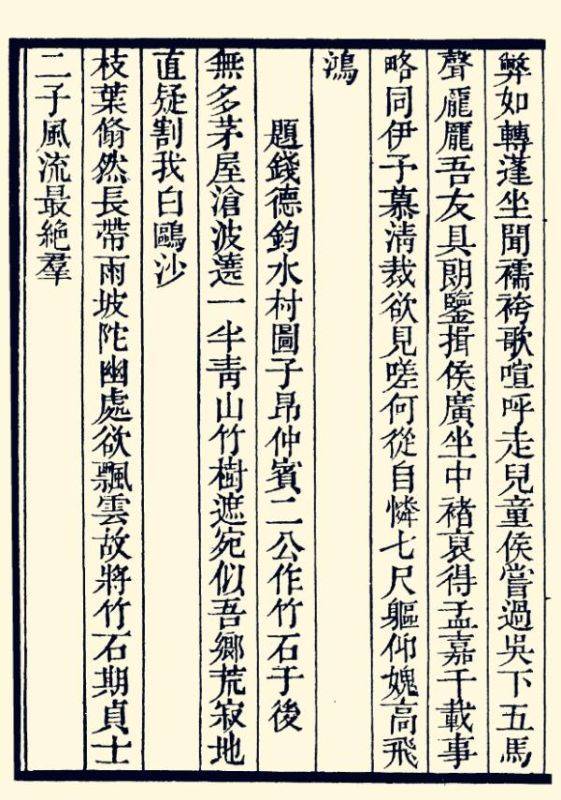 弊如轉蓬坐聞襦袴歌喧呼走兒童侯嘗過吳下五馬
聲龎龎吾友具朗鑒揖侯廣坐中褚裒得孟嘉千載事
略同伊予慕淸裁欲見嗟何從自憐七尺軀仰媿高飛
鴻
題錢德鈞水村圖子昂仲賓二公作竹石于後
無多茅屋滄波遶一半靑山竹樹遮宛似吾鄉荒寂地
直疑割我白鷗沙
枝葉翛然長帶雨坡陀幽處欲飄雲故將竹石期貞士
二子風流最絶羣